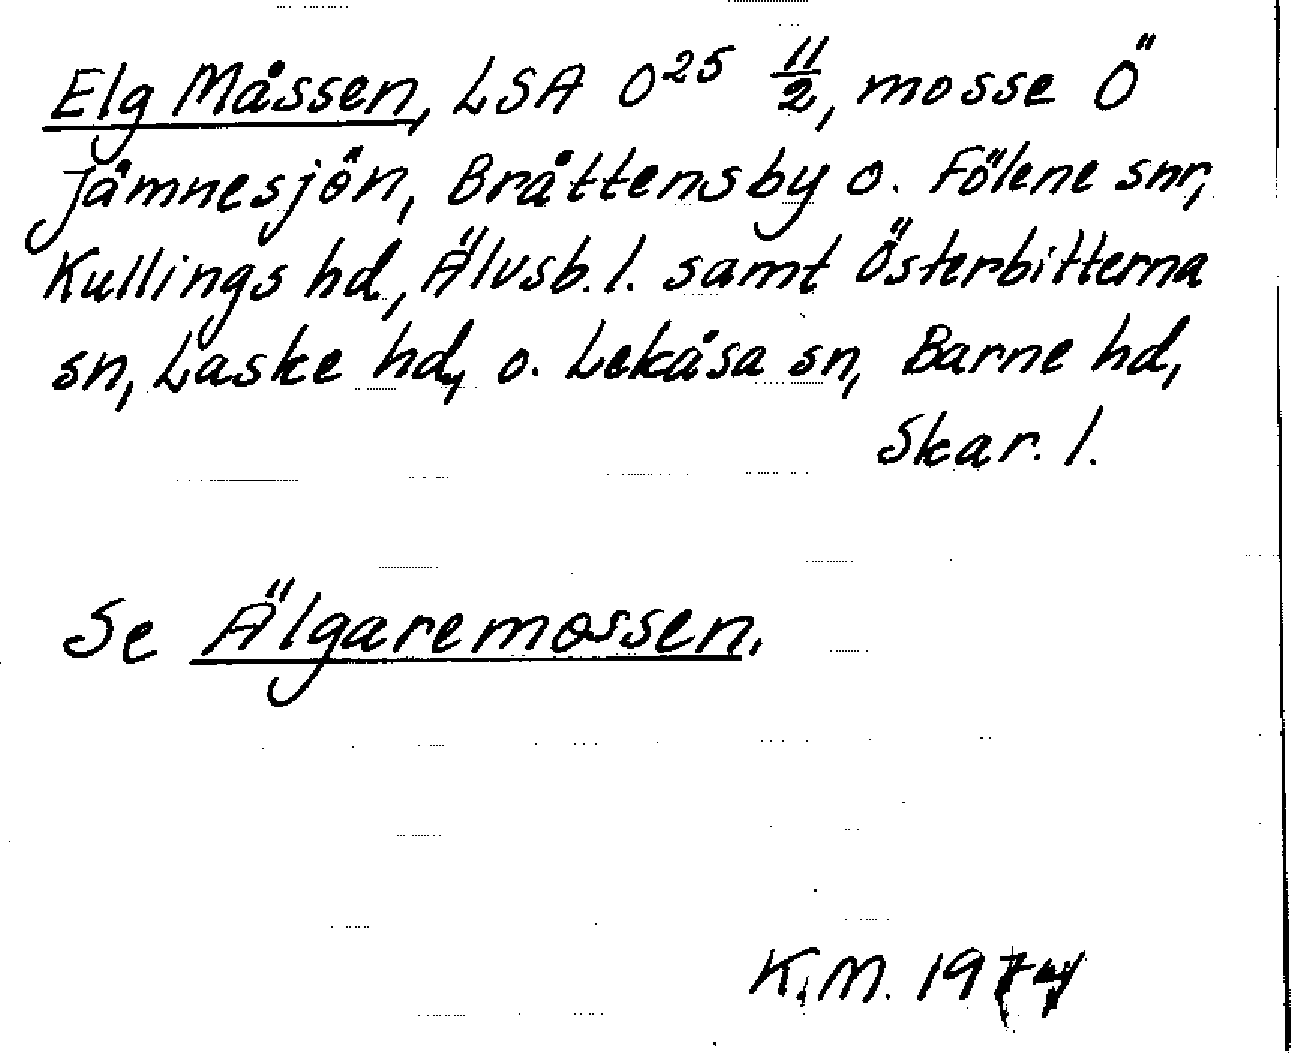 Elg Måssen, LSA O25 11/2, mosse Ö
Jämnesjön, Bråttensby o. Fölene snr,
Kullings hd, Älvsb. l. samt Österbitterna
sn, Laske hd, o. Lekåsa sn, Barne hd,
Skar. l.
Se Älgaremossen.
K.M. 1974